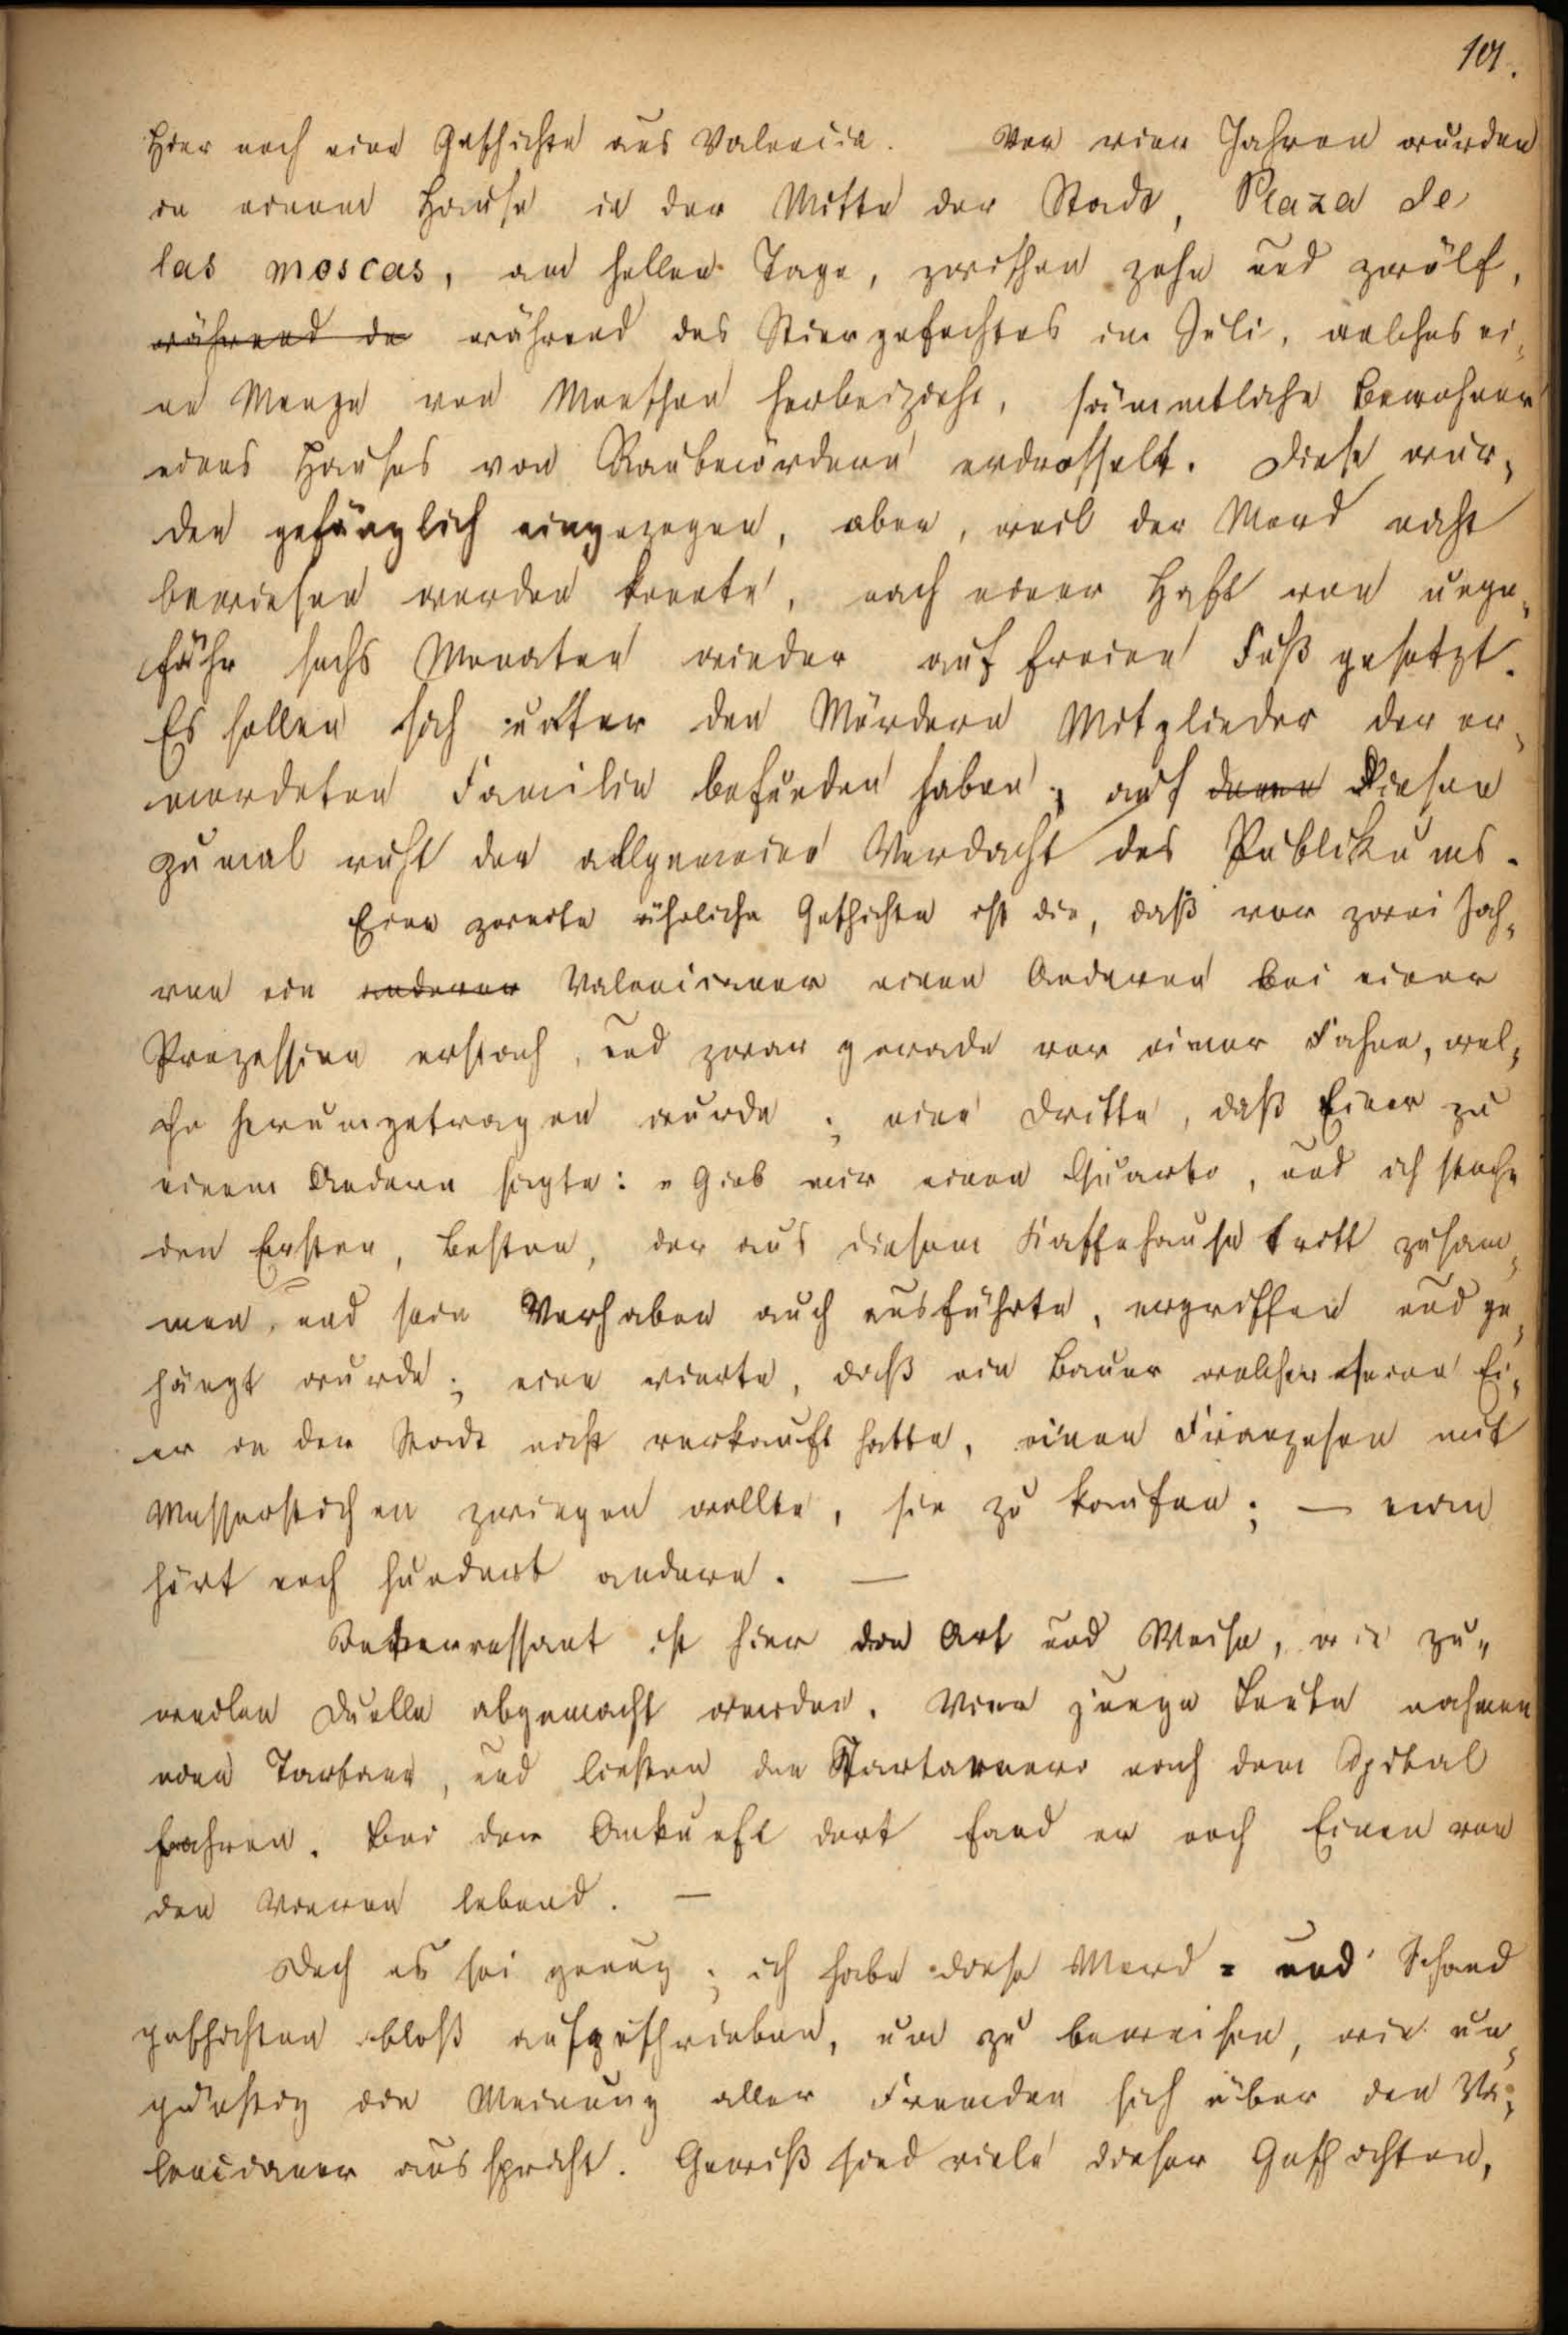 101.
Hier noch eine Geschichte aus Valencia. Vor vier Jahren wurden
in einem Hause in der Mitte der Stadt, Plaza de
las moscas, am hellen Tage, zwischen zehn und zwölf,
während de während des Stiergefechtes im Juli, welches ei-
ne Menge von Menschen herbeizieht, sämmtliche Bewohner
eines Hauses von Raubmördern erdrosselt. Diese wur-
den gefänglich eingezogen, aber, weil der Mord nicht
bewiesen werden konnte, nach einer Haft von unge-
fähr sechs Monaten wieder auf freien Fuß gesetzt.
Es sollen sich unter den Mördern Mitglieder der er-
mordeten Familie befunden haben; auf denen Diesen
zumal ruht der allgemeine Verdacht des Publikums.
Eine zweite ähnliche Geschichte ist die, daß vor zwei Jah-
ren ein anderer Valencianer einen Anderen bei einer
Prozession erstach, und zwar gerade vor einer Fahne, wel-
che herumgetragen wurde; eine dritte, daß Einer zu
einem Andern sagte: „Gieb mir einen Quarto, und ich steche
den Ersten, Besten, der aus diesem Kaffehause tritt zusam-
men, und sein Vorhaben auch ausführte, ergriffen und ge-
hängt wurde; eine vierte, daß ein Bauer welcher seine Ei-
er in der Stadt nicht verkauft hatte, einen Franzosen mit
Messerstichen zwingen wollte, sie zu kaufen; — man
hört noch hundert andere. —
Interressant ist hier die Art und Weise, wie zu-
weilen Duelle abgemacht werden. Vier junge Leute nahmen
eine Tartane, und ließen den Tartanero nach dem Spital
fahren. Bei der Ankunft dort fand er noch Einen von
den Vieren lebend. —
Doch es sei genug; ich habe diese Mord- und Schand
geschichten bloß aufgeschrieben, um zu beweisen, wie un-
günstig die Meinung aller Fremden sich über den Va-
lencianer ausspricht. Gewiß sind viele dieser Geschichten,